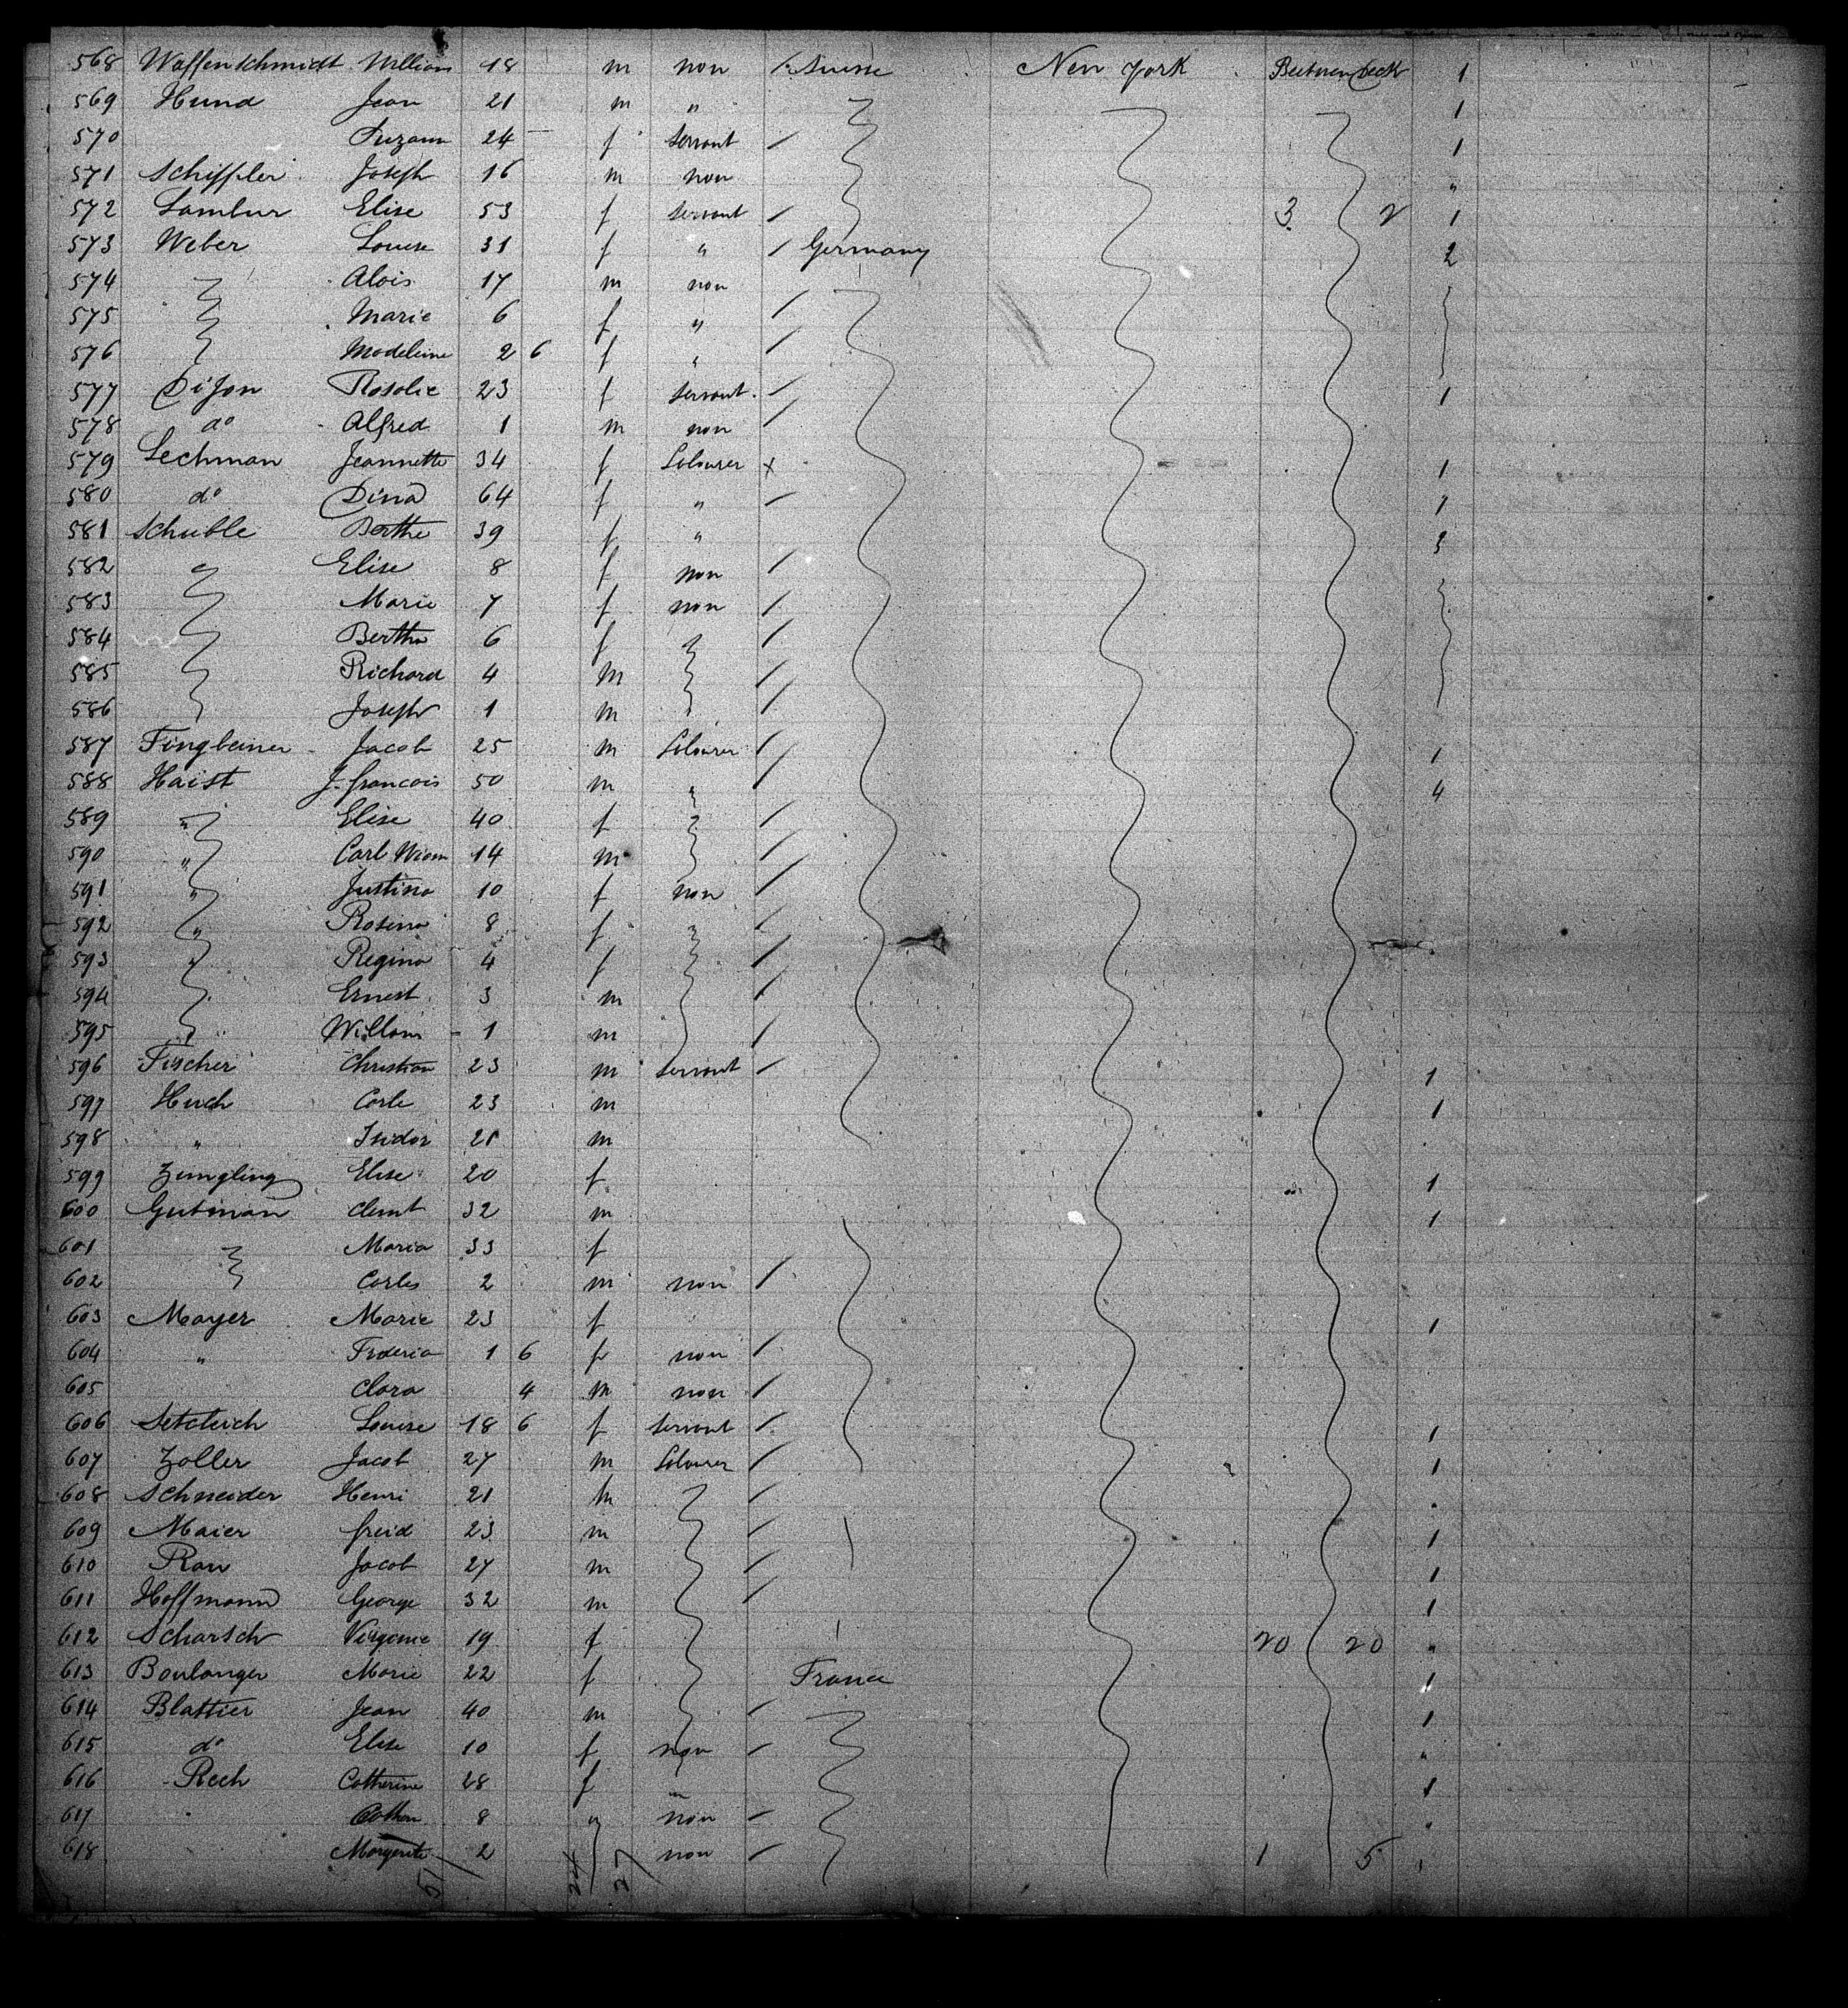 568 Waffenschmidt William 18 m non / Suisse New York Between Deck 1
569 Hund Jean 21 m " 1
570 Suzann 24 f servant / 1
571 Schiffler Joseph 16 m non "
572 Lambur Elise 53 f servant / 3 2 1
573 Weber Louise 31 f " / Germany 2
574 Alois 17 m non
575 Marie 6 f " /
576 Madeleine 2 6 f " /
577 Dijon Rosalie 23 f servant / 1
578 do Alfred 1 m non /
579 Lechman Jeannette 34 f Labourer x 1
580 do Dina 64 f " / 1
581 Schuble Berthe 39 f " 3
582 Elise 8 f non /
583 Marie 7 f non /
584 Bertha 6 f /
585 Richard 4 m /
586 Joseph 1 m /
587 Fingbeiner Jacob 25 m Labourer / 1
588 Haist J. francois 50 m " / 4
589 " Elise 40 f /
590 " Carl Wiam 14 m /
591 " Justina 10 f non /
592 " Rosina 8 f /
593 " Regina 4 f /
594 Ernest 3 m /
595 " William 1 m /
596 Fischer Christian 23 m servant / 1
597 Huch Carle 23 m 1
598 " Isidor 21 m
599 Zungling Elise 20 f 1
600 Gutman clemt 32 m 1
601 Maria 33 f
602 Carles 2 m non /
603 Mayer Marie 23 f 1
604 " Frderia 1 6 f non /
605 Clara 4 m non /
606 Louise 18 6 f servant / 1
607 Zoller Jacob 27 m Labourer / 1
608 Schneider Henri 21 m /
609 Maier freid 23 m / 1
610 Rau Jacob 27 m / 1
611 Hoffmann George 32 m / 1
612 Scharsch Virginie 19 f 20 20 "
613 Boulanger Marie 22 f France 1
614 Blattier Jean 40 m / 1
615 do Elise 10 f non / "
616 Rech Catherine 28 f 1
617 8 " non / "
618 Margerite 2 non / 1 5
51 24 27